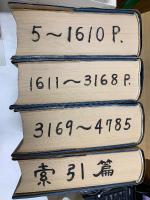 5～1610 P.
1611～3168 P.
3169～4785
索引篇